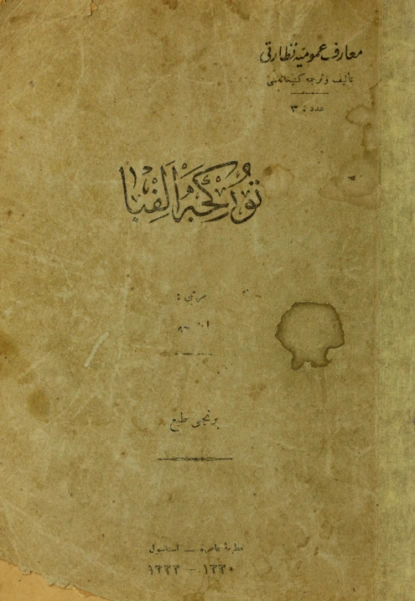 معارف عمومیه نظارتی
تألیف و ترجمه کتبخانه‌سی
عدد : ۳
تورکجه الفبا
مرتبی :
برنجی طبع
مطبعهٔ عامره — استانبول
۱۳۳۰ — ۱۳۳۲